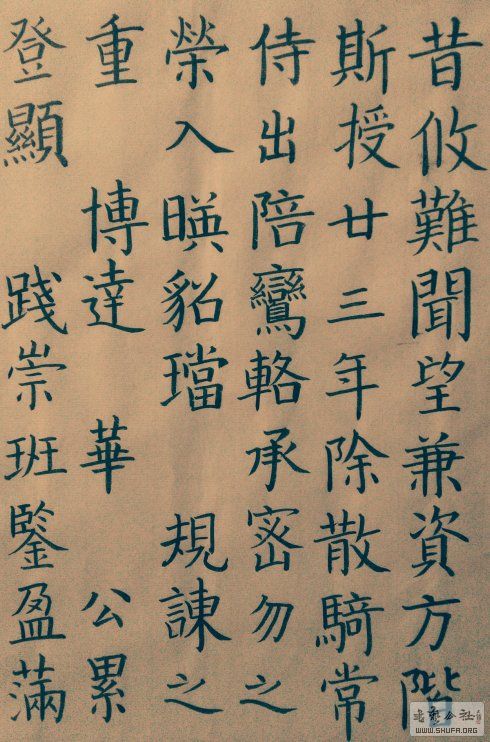 昔攸難聞望兼資方階
斯授廿三年除散騎常
侍出陪鸞輅承密勿之
榮入暎貂璫 規諫之
重 博達 華 公累
登顯 踐崇班鑒盈滿
书艺公社
WWW.SHUFA.ORG